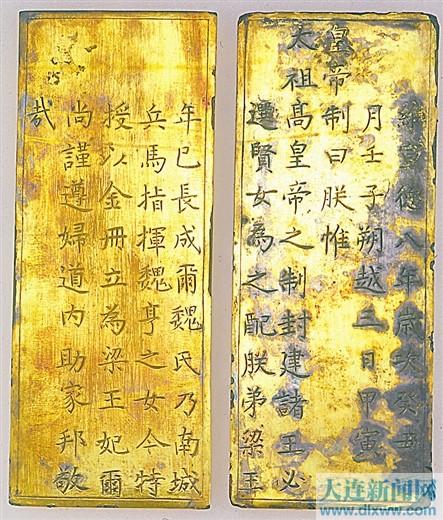 維宣德八年歲次癸丑
月壬子朔越三日甲寅
皇帝制曰朕惟
太祖高皇帝之制封建諸王必
選賢女為之配朕弟梁王
年已長成爾魏氏乃南城
兵馬指揮魏亨之女今特
授以金冊立為梁王妃爾
尚謹遵婦道內助家邦敬
哉
大连新闻网
www.dlxww.com